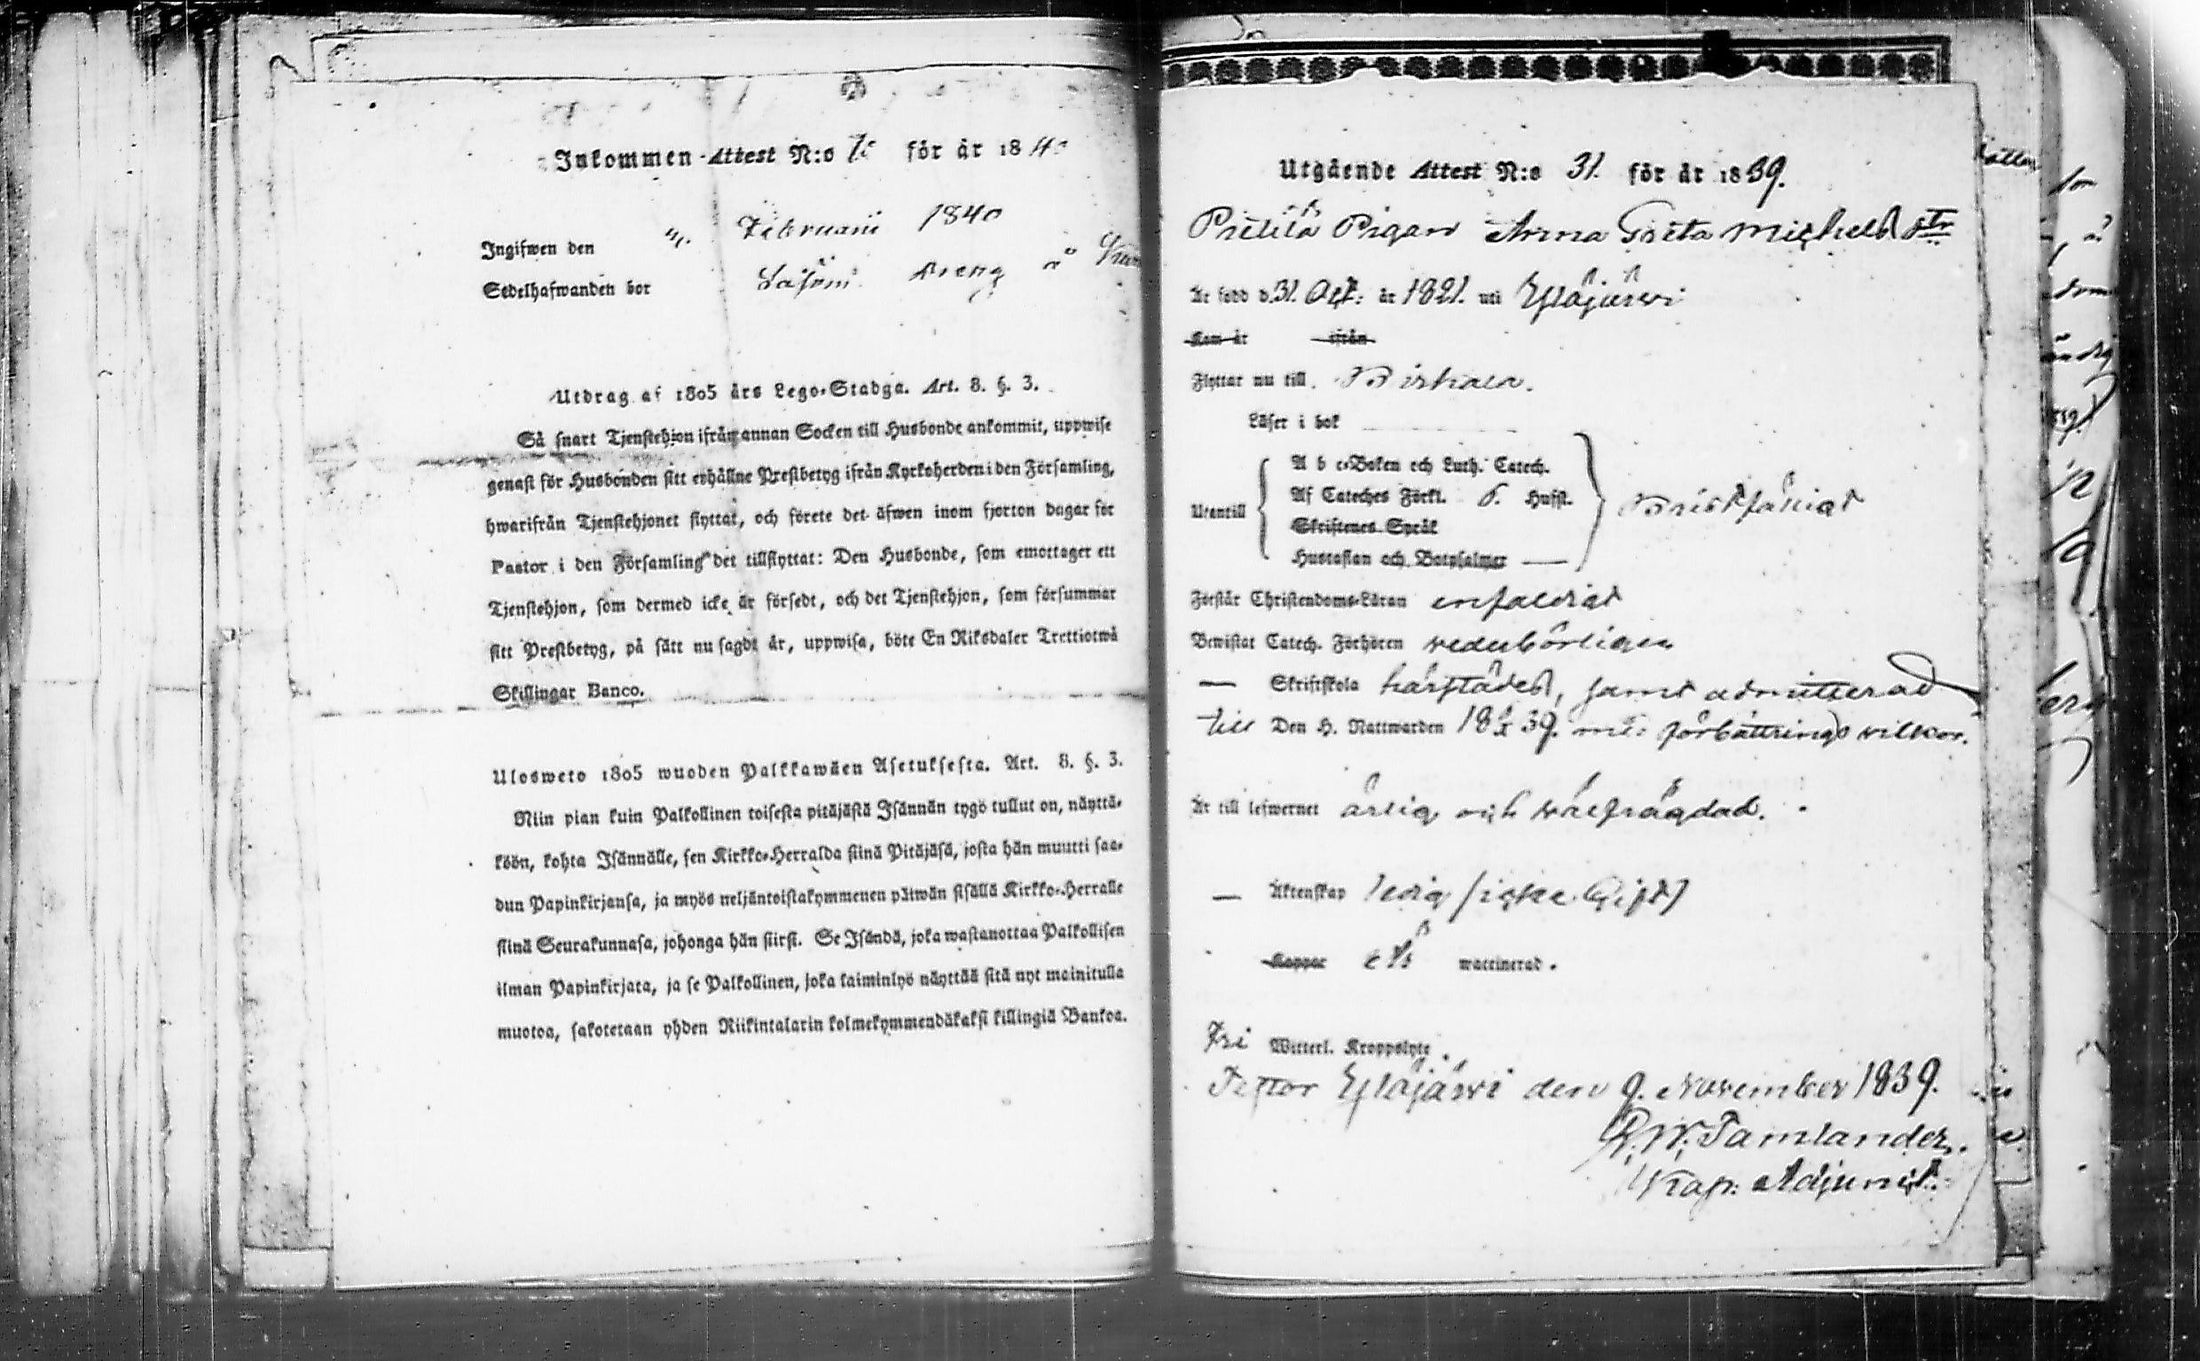 Inkommen Attest N:o för år 1840
Ingifwen den Februarii 1840
Sedelhafwanden bor
Utdrag af 1805 års Lego-Stadga. Art. 8. §. 3.
Så snart Tjenstehjon ifrån annan Socken till Husbonde ankommit, uppwise
genast för Husbonden sitt erhållne Prestbetyg ifrån Kyrkoherden i den Församling,
hwarifrån Tjenstehjonet flyttat, och förete det äfwen inom fjorton dagar för
Pastor i den Församling det tillflyttat: Den Husbonde, som emottager ett
Tjenstehjon, som dermed icke är försedt, och det Tjenstehjon, som försummar
sitt Prestbetyg, på sätt nu sagdt är, uppwisa, böte En Riksdaler Trettiotwå
Skillingar Banco.
Ulosweto 1805 wuoden Palkkawäen Asetuksesta. Art. 8. §. 3.
Niin pian kuin Palkollinen toisesta pitäjästä Isännän tygö tullut on, näyttä-
köön, kohta Isännälle, sen Kirkko-Herralda siinä Pitäjäsä, josta hän muutti saa-
dun Papinkirjansa, ja myös neljäntoistakymmenen päiwän sisällä Kirkko-Herralle
siinä Seurakunnasa, johonga hän siirsi. Se Isändä, joka wastanottaa Palkollisen
ilman Papinkirjata, ja se Palkollinen, joka laiminlyö näyttää sitä nyt mainitulla
muotoa, sakotetaan yhden Riikintalarin kolmekymmendäkaksi killingiä Bankoa.
Utgående Attest N:o 31. för år 1839.
Pigan Anna Greta Michelsdtr
Är född d. 31. Oct: år 1821. uti Ylöjärvi
Kom år ifrån
Flyttar nu till Birkala.
Läser i bok
Utantill
A b c-Boken och Luth. Catech.
Af Cateches Förkl. 6. Hufst.
Skriftenes Språk
Hustaflan och Botpsalmer
Bristfäligt
Förstår Christendoms-Läran enfaldigt
Bewistat Catech. Förhören wederbörligen
— Skriftskola härstädes, samt admitterad
till Den H. Nattwarden 18 39. förbättrings wilkor.
Är till lefwernet ärlig och wälfrägdad.
— Äktenskap ledig (icke Gift)
Koppor waccinerad.
Fri Witterl. Kroppslyte.
Testor Ylöjärwi den 9. November 1839.
Tamlander.
Kap: Adjunct.